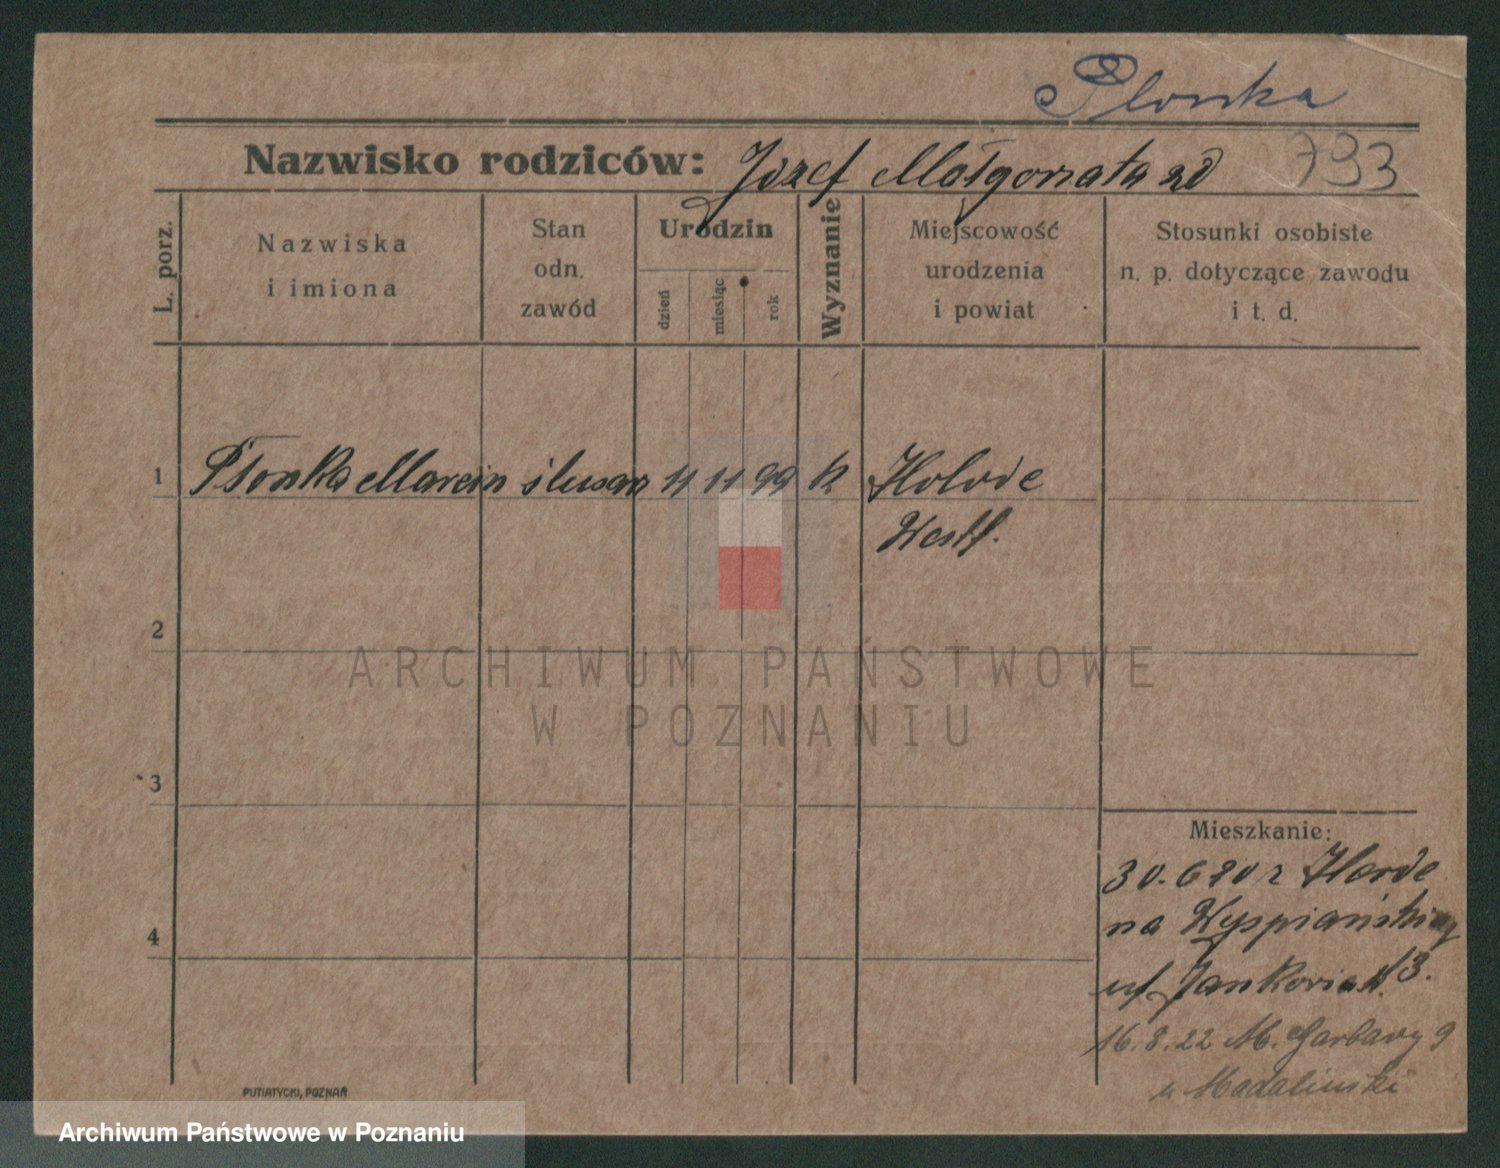 Plonka
Nazwisko rodziców: Józef Małgorzata zd
793
L. porz.
Nazwiska
i imiona
Stan
odn.
zawód
Urodzin
dzień
miesiąc
rok
Wyznanie
Miejscowość
urodzenia
i powiat
Stosunki osobiste
n. p. dotyczące zawodu
i t. d.
1 Płonka Marcin ślusarz 11 11 99 k
Westf.
2
ARCHIWUM PAŃSTWOWE
W POZNANIU
3
Mieszkanie:
30.6 20 z Horde
na Wyspiańskiego
13.
4
16.8.22 M. Garbary 9
u Madalinski
PUTIATYCKI, POZNAŃ
Archiwum Państwowe w Poznaniu